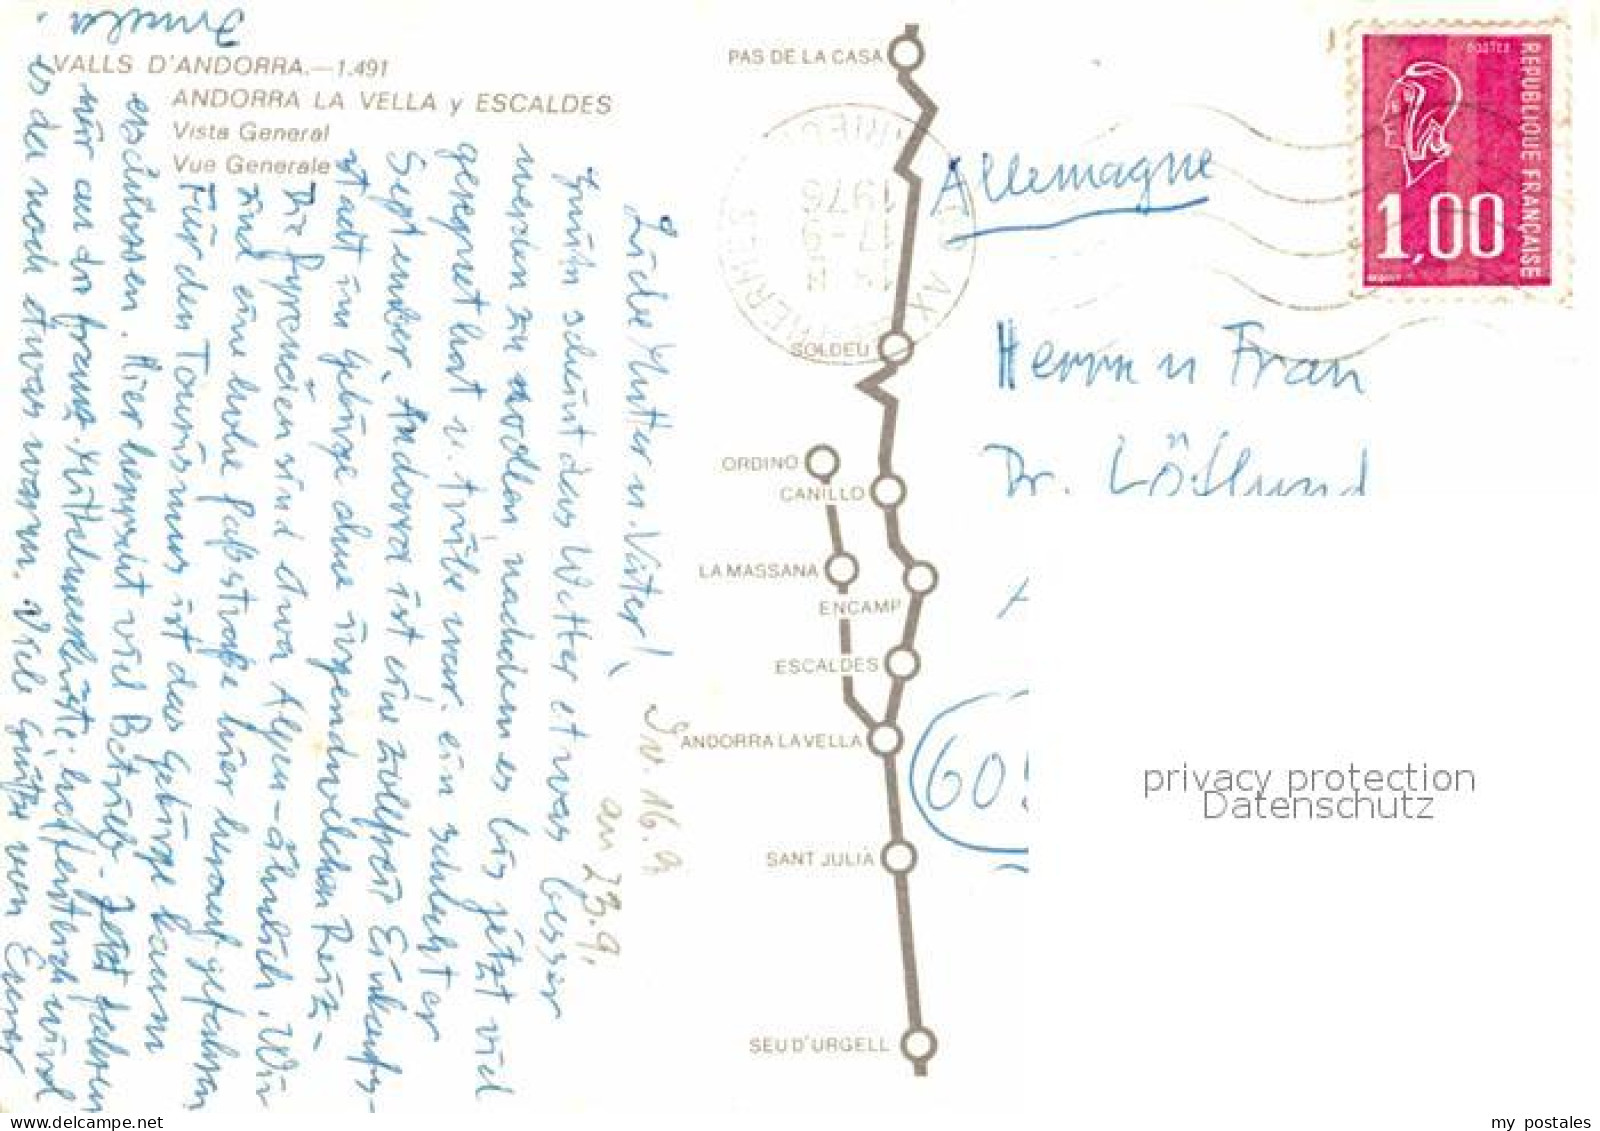 VALLS D'ANDORRA.—1.491
ANDORRA LA VELLA y ESCALDES
Vista General
Vue Generale
Sv. 16.9
an 23.9.
Liebe Mutter u. Vater!
scheint das Wetter etwas besser
werden zu wollen, nachdem es bis jetzt viel
geregnet hat u. trübe war. ein schlechter
September. Andorra ist eine zollfreie Einkaufs-
stadt im Gebirge ohne irgendwelchen Reiz –
Die Pyrenäen sind etwa Alpen-ähnlich. Wir
sind eine hohe Paßstraße hier herauf gefahren
Für den Tourismus ist das Gebirge kaum
erschlossen. Hier herrscht viel Betrieb – Jetzt fahren
wir an die franz. Mittelmeerküste, hoffentlich wird
es da noch etwas warm. Viele Grüße von Eurer
PAS DE LA CASA
SOLDEU
ORDINO
CANILLO
LA MASSANA
ENCAMP
ESCALDES
ANDORRA LA VELLA
SANT JULIÀ
SEU D'URGELL
1976
Allemagne
REPUBLIQUE FRANÇAISE
POSTES
1,00
Herrn u Frau
Dr. Löflund
60
privacy protection
Datenschutz
my postales